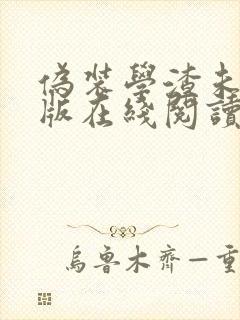 偽裝學渣未
版在綫閱讀
烏魯木齊—重